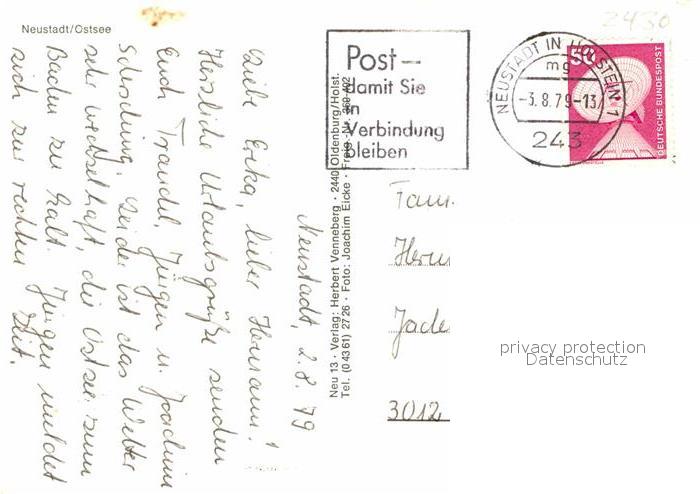 Neustadt/Ostsee
2430
Neustadt, 2.8.79
Liebe Erika, lieber Hermann!
Herzliche Urlaubsgrüße senden
Euch Traudel, Jürgen u. Joachim
Leider ist das Wetter
sehr wechselhaft, die Ostsee zum
Baden zu kalt. Jürgen meldet
sich zur rechten Zeit.
Neu 13 · Verlag: Herbert Venneberg · 2440 Oldenburg/Holst.
Tel. (04361) 2726 · Foto: Joachim Eicke · Freig.-Nr.
Post –
damit Sie
in
Verbindung
bleiben
NEUSTADT IN HOLSTEIN 1
mg
-3.8.79-13
243
50
DEUTSCHE BUNDESPOST
Fam.
Herm
Jade
3012
privacy protection
Datenschutz